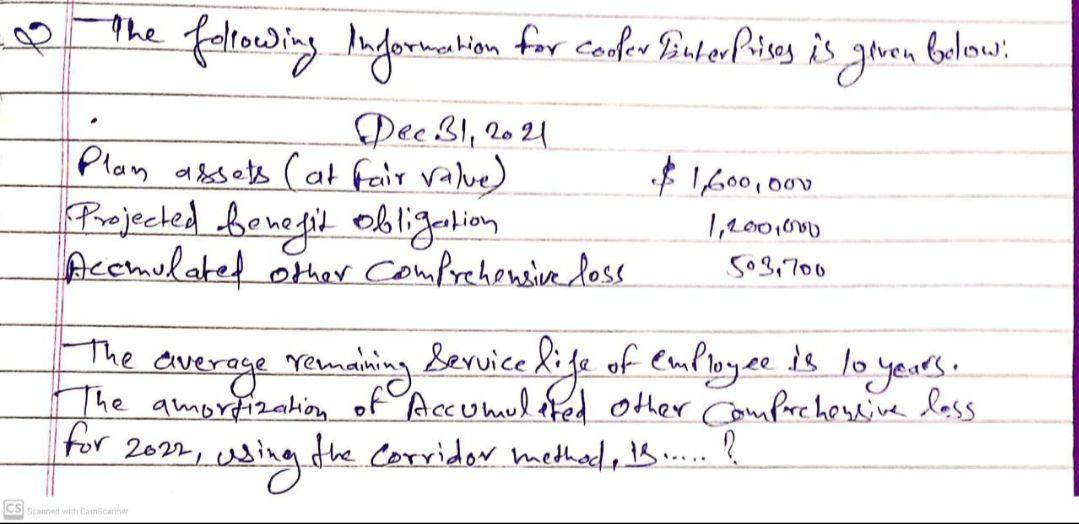 Q The following Information for Cooper Enterprises is given below:
Dec 31, 2021
Plan assets (at fair value) $ 1,600,000
Projected benefit obligation 1,200,000
Accmulated other Comprehensive loss 503,700
The average remaining Service life of employee is 10 years.
The amortization of Accumulated other Comprehensive loss
for 2022, using the Corridor method, is.....?
CS Scanned with CamScanner